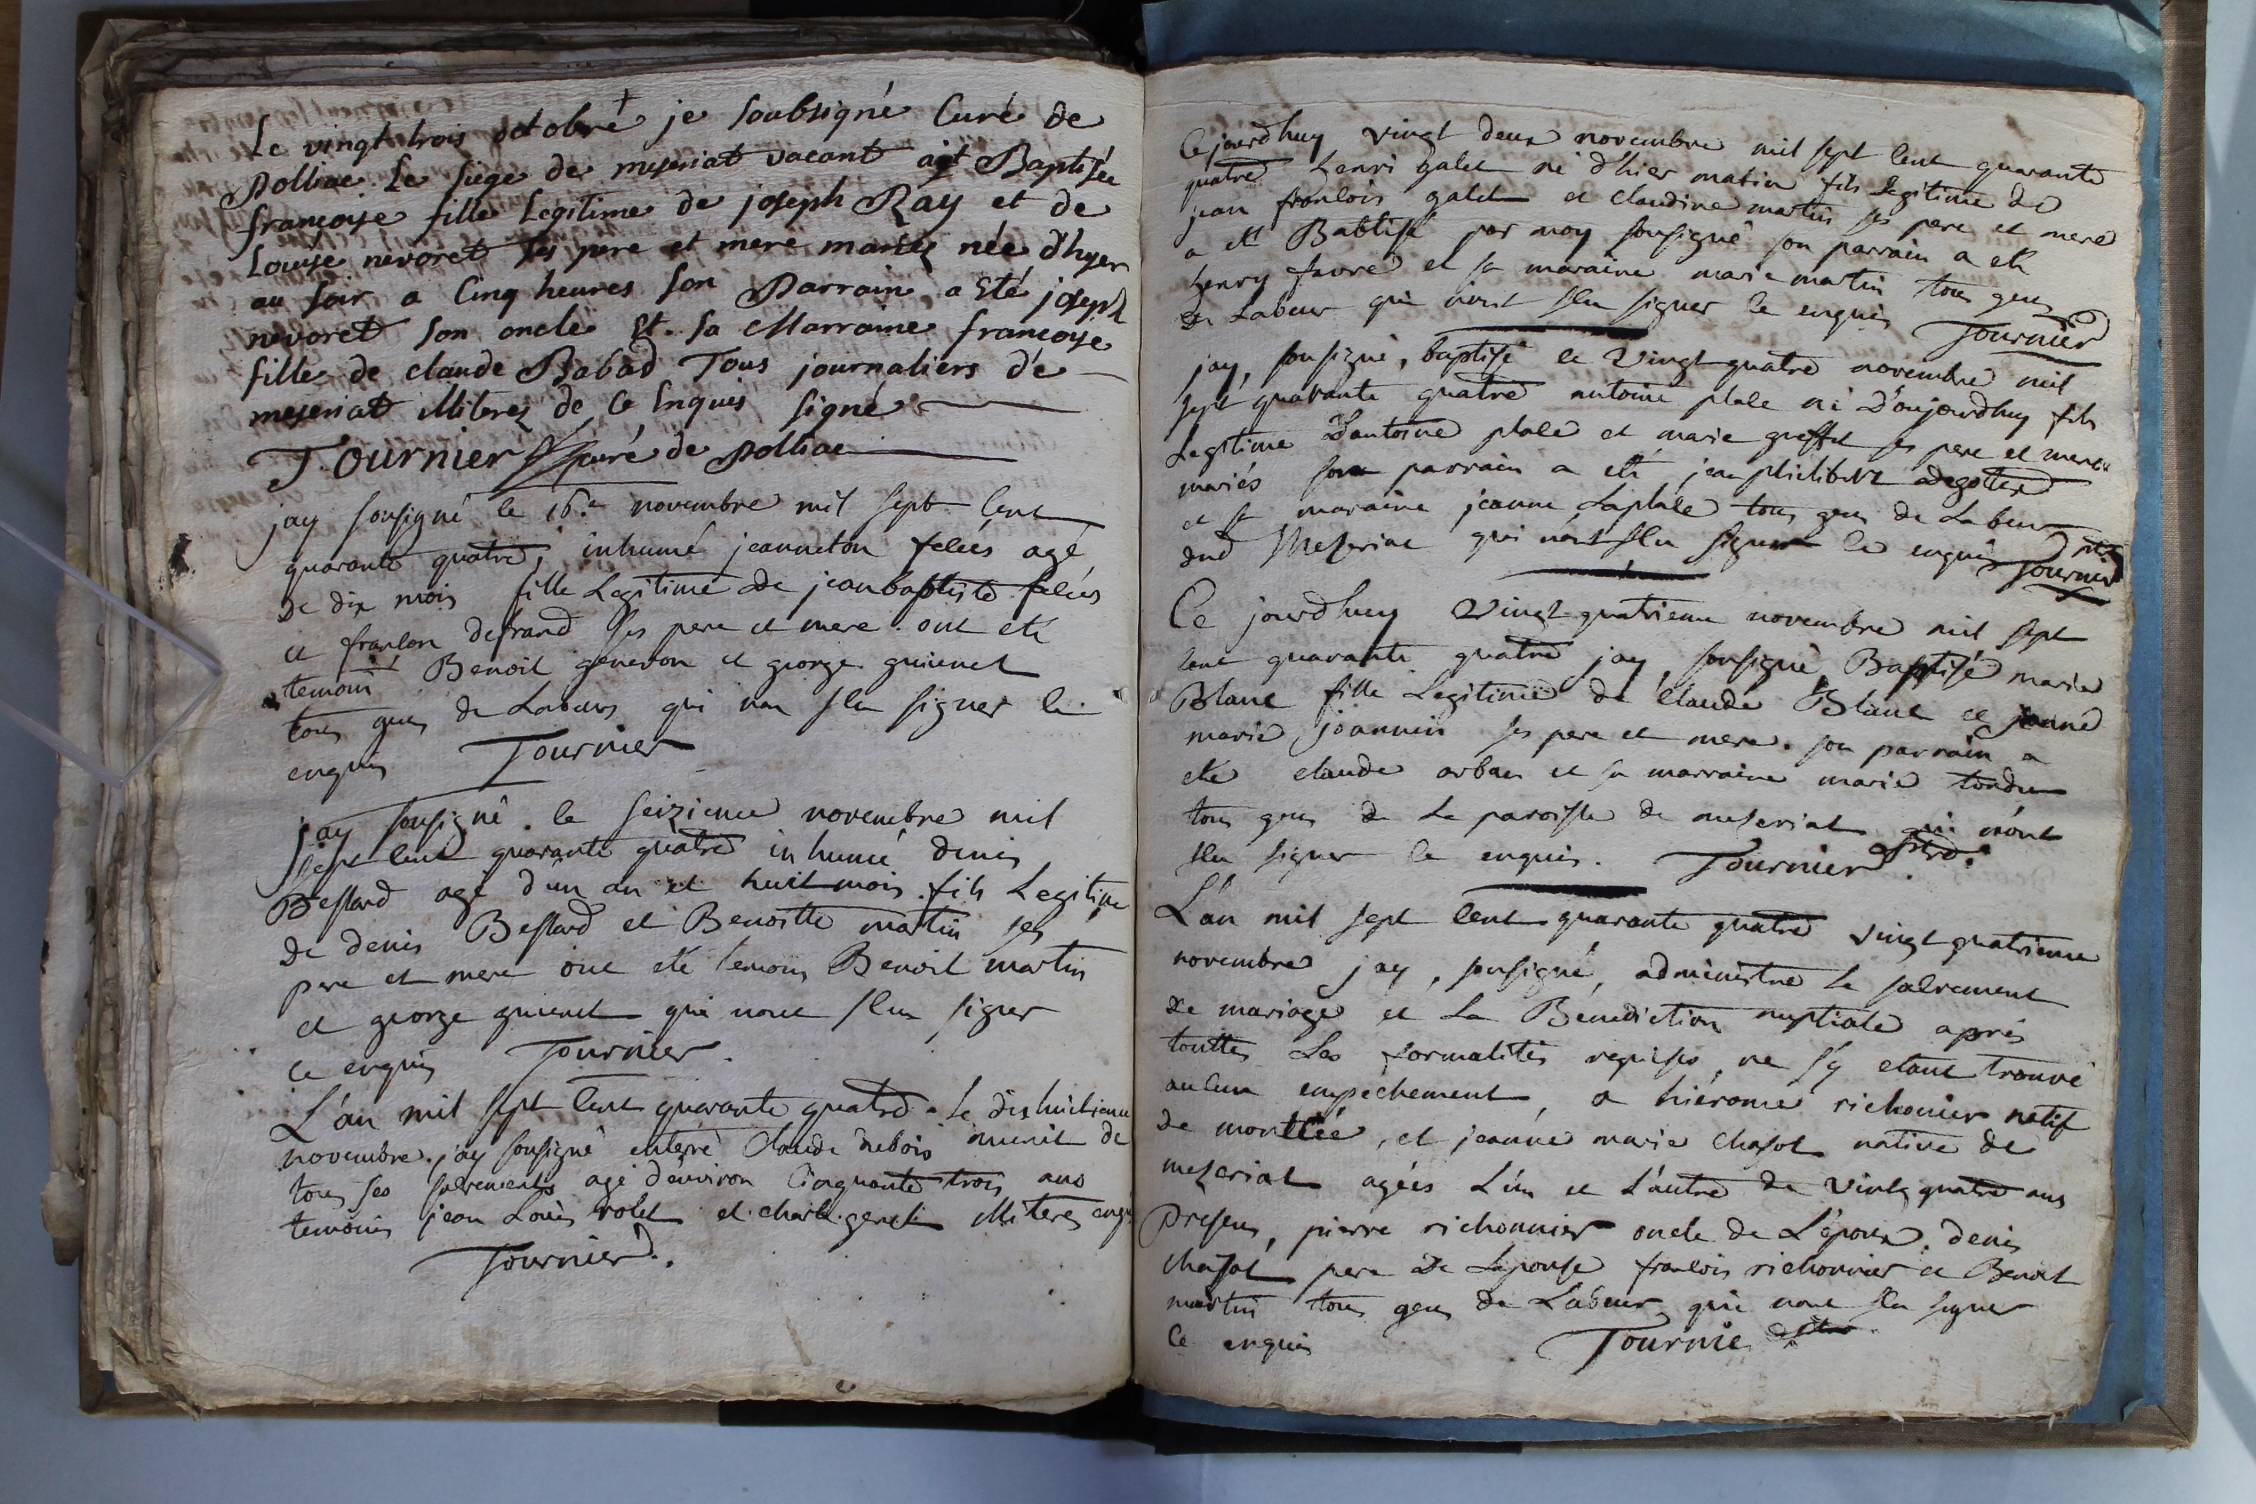 Le vingt trois octobre je soubsigné Curé de
polliac Le siege de meseriat vacant ait Baptisée
françoise fille Legitime de joseph Ray et de
Louise nevoret ses pere et mere mariez née d'hyer
au soir a Cinq heures son Parrain a Eté joseph
nevoret son oncle Et sa Marraine françoise
fille de claude Babad Tous journaliers de
meseriat illiterez de ce Enquis signé
Tournier curé de polliac
jay sousigné le 16.e novembre mil sept Cent
quarante quatre, inhumé jeanneton felées agé
de dix mois fille Legitime de jean baptiste felées
et franlon defrand ses pere et mere. ont eté
temoin Benoit genevon et george guienet
tous gens de Labeurs qui non sceu signer le
enquis Tournier
jay sousigné. le seizieme novembre mil
sept Cent quarante quatre inhumé denis
Bessard agé d'un an et huit mois. fils Legitime
de denis Bessard et Benoitte martin ses
pere et mere ont eté temoins Benoit martin
et george guienet qui nont sceu signer
ce enquis Tournier.
L'an mil sept Cent quarante quatre. le dix huitieme
novembre. jay sousigné enterré Claude dubois munit de
tous ses sacrements agé d'environ Cinquante trois ans
temoins jean Louis rolet et charle gerelin illiteres enqu
Tournier.
Cejourdhuy vingt deux novembre mil sept Cent quarante
quatre henri galet né d'hier matin fils Legitime de
jean franlois galet et claudine martin ses pere et mere
a eté Babtisé par moy sousigné son parrain a eté
henry favre et sa maraine marie martin tous gens
de Labeur qui n'ont sceu signer le enquis Tournier
jay, sousigné, baptisé le Vingt quatre novembre mil
sept quarante quatre antoine plale né D'aujourdhuy fils
Legitime D'antoine plale et marie greffet ses pere et mere
mariés son parrain a eté jean philibert
et sa maraine jeanne Laplale tous gens de Labeur
dud Mezeriac qui n'ont sceu signer le enquis Tournier
Ce jourdhuy Vingt quatrieme novembre mil sept
Cent quarante quatre jay sousigné Baptisé marie
Blanc fille Legitime de Claude Blanc et jeanne
marie joannin ses pere et mere. son parrain a
eté claude arban et sa marraine marie tondu
tous gens de La paroisse de meseriat qui n'ont
sceu signer le enquis. Tournier
L'an mil sept Cent quarante quatre vingt quatrieme
novembre jay, sousigné, administre le sacrement
de mariage et La Bénédiction nuptiale aprés
touttes Les formalités requises, ne s'y etant trouvé
aucun empéchement, a hiérome richonier natif
de montcée, et jeanne marie Chasot native de
mezeriat agées L'un et L'autre de Vint quatre ans
Presens, pierre richonnier oncle de L'époux. denis
Chasot pere de Lepouse franlois richonnier et Benoit
martin tous gens de Labeur qui nont sceu signer
Ce enquis Tournie